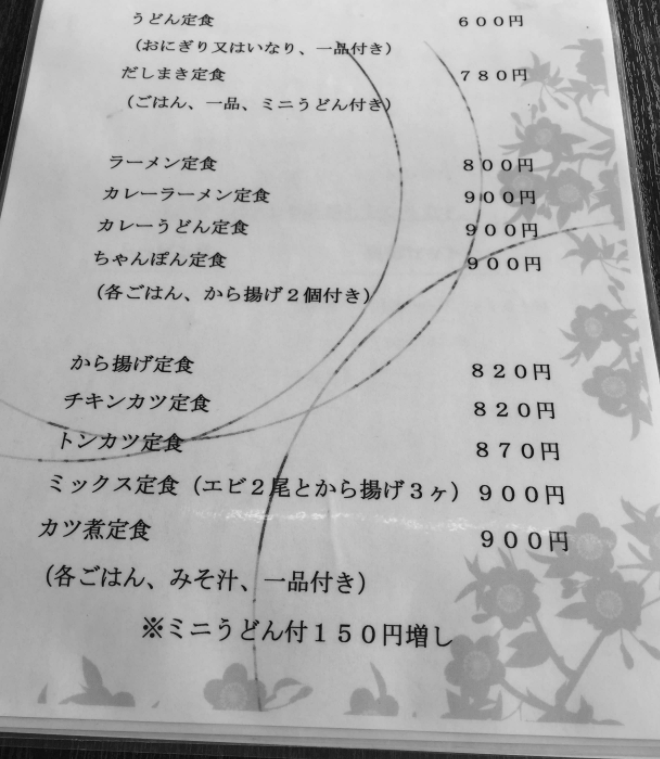 うどん定食 600円
(おにぎり又はいなり、一品付き)
だしまき定食 780円
(ごはん、一品、ミニうどん付き)
ラーメン定食 800円
カレーラーメン定食 900円
カレーうどん定食 900円
ちゃんぽん定食 900円
(各ごはん、から揚げ2個付き)
から揚げ定食 820円
チキンカツ定食 820円
トンカツ定食 870円
ミックス定食(エビ2尾とから揚げ3ヶ) 900円
カツ煮定食 900円
(各ごはん、みそ汁、一品付き)
※ミニうどん付150円増し